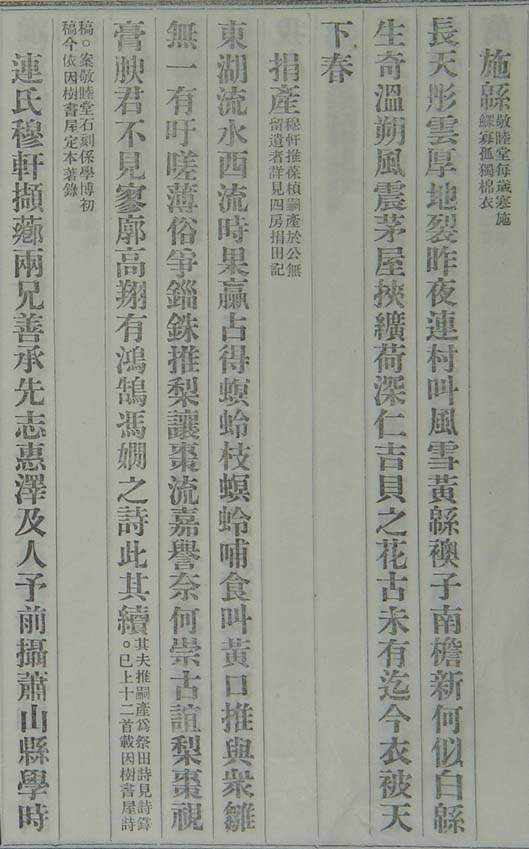 施緜敬睦堂每歲寒施
鰥寡孤獨棉衣
長天彤雲厚地裂昨夜連村叫風雪黃緜襖子南檐新何似白緜
生奇溫朔風震茅屋挾纊荷深仁吉貝之花古未有迄今衣被天
下春
捐產穆軒推葆楨嗣產於公無
留遺者詳見四房捐田記
東湖流水西流時果蠃占得螟蛉枝螟蛉哺食叫黃口推與衆雛
無一有吁嗟薄俗爭錙銖推梨讓棗流嘉譽奈何崇古誼梨棗視
膏腴君不見寥廓高翔有鴻鵠馮嫺之詩此其續其夫推嗣產爲祭田詩見詩鋅
。已上十二首載因樹書屋詩
稿。案敬睦堂石刻係學博初
稿今依因樹書屋定本著錄
連氏穆軒擷薌兩兄善承先志惠澤及人予前攝蕭山縣學時